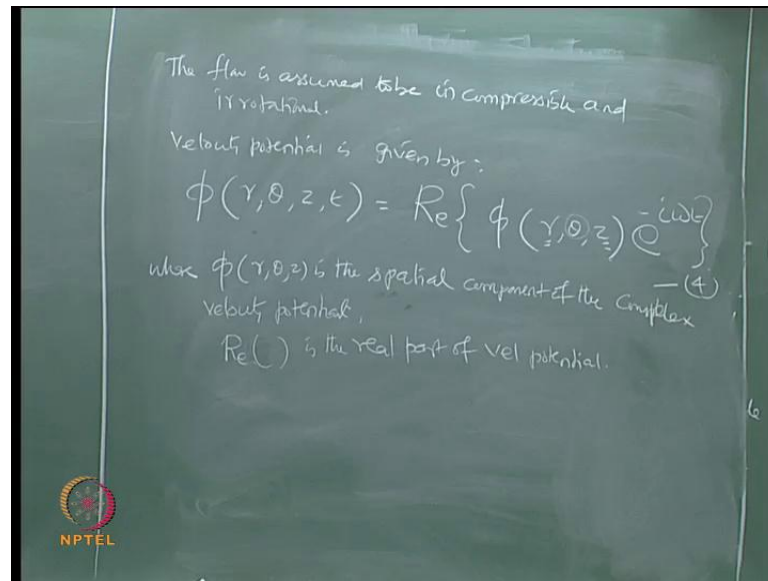 The flow is assumed to be incompressible and
irrotational.
Velocity potential is given by:
ϕ(r,θ,z,t) = Re{ ϕ(r,θ,z) e^{-iωt} }
— (4)
where ϕ(r,θ,z) is the spatial component of the complex
velocity potential,
Re( ) is the real part of vel potential.
NPTEL